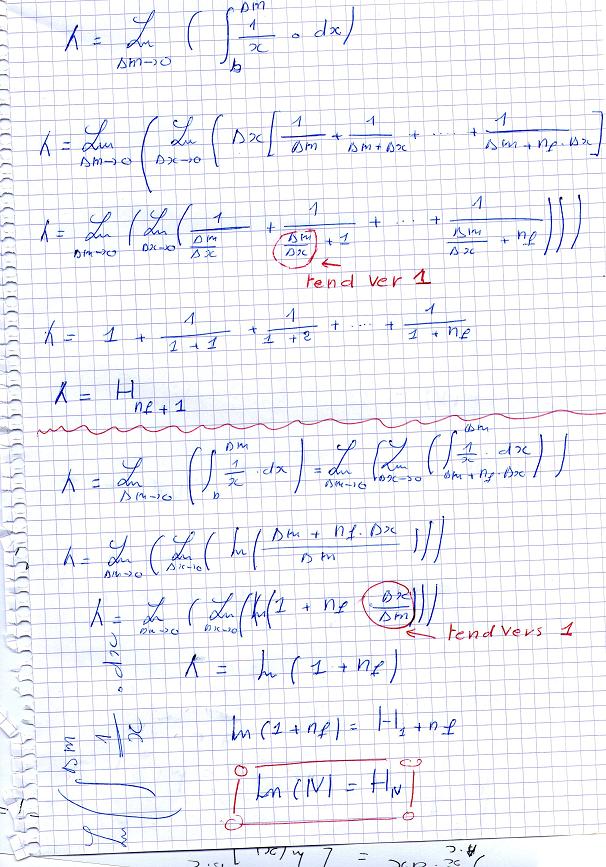 λ = Lim_{Δm→0} ( ∫_b^{Δm} 1/x · dx )
λ = Lim_{Δm→0} ( Lim_{Δx→0} ( Δx [ 1/Δm + 1/(Δm + Δx) + ..... + 1/(Δm + nf · Δx) ]
λ = Lim_{Δm→0} ( Lim_{Δx→0} ( 1/(Δm/Δx) + 1/(Δm/Δx + 1) + ... + 1/(Δm/Δx + nf) ) ) )
tend ver 1
λ = 1 + 1/(1 + 1) + 1/(1 + 2) + ... + 1/(1 + nf)
λ = H_{nf + 1}
λ = Lim_{Δm→0} ( ∫_b^{Δm} 1/x · dx ) = Lim_{Δm→0} ( Lim_{Δx→0} ( ∫_{Δm + nf · Δx}^{Δm} 1/x · dx ) )
λ = Lim_{Δm→0} ( Lim_{Δx→0} ( ln ( (Δm + nf · Δx)/Δm ) ) )
λ = Lim_{Δm→0} ( Lim_{Δx→0} ( ln ( 1 + nf Δx/Δm ) ) )
tend vers 1
λ = ln ( 1 + nf )
ln (1 + nf) = H_{1 + nf}
Ln (N) = H_N
∫^{Δm} 1/x · dx